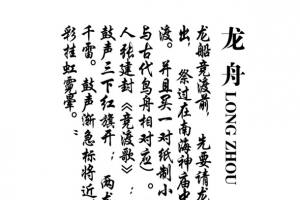 龙舟
LONG ZHOU
龙船竞渡前，先要请龙
出，祭过在南海神庙中
渡。并且买一对纸制小
与古代鸟舟相对应）。
人张建封《竞渡歌》：
鼓声三下红旗开；两龙
千雷。鼓声渐急标将近
彩挂虹霓晕。